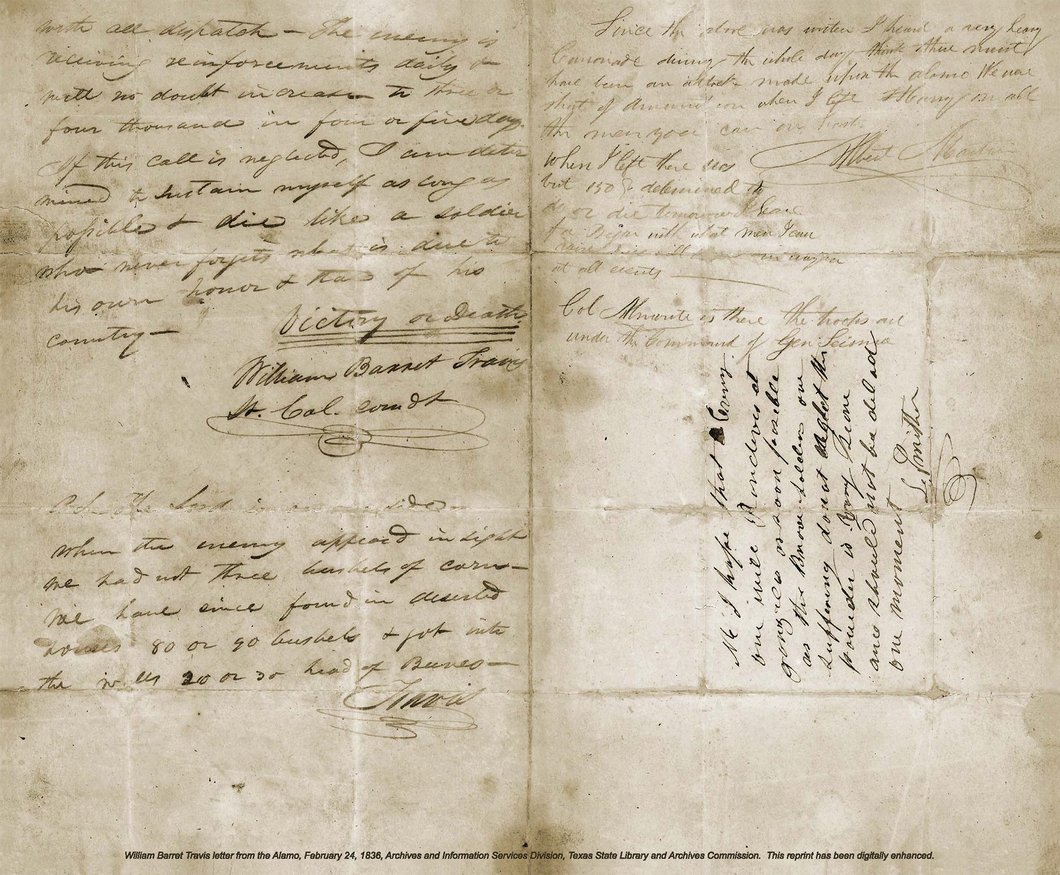 with all dispatch — The enemy is
receiving reinforcements daily &
will no doubt increase to three or
four thousand in four or five days.
If this call is neglected, I am deter
mined to sustain myself as long as
possible & die like a soldier
who never forgets what is due to
his own honor & that of his
country —
Victory or Death
William Barret Travis
Lt. Col. comdt
P.S. The Lord is on our side —
when the enemy appeard in sight
we had not three bushels of corn —
we have since found in deserted
houses 80 or 90 bushels & got into
the walls 20 or 30 head of Beeves —
Travis
Since the above was written I heard a very heavy
Canonade during the whole day think there must
have been an attack made upon the alamo We were
short of Ammunition when I left Hurry on all
the men you can
Albert Martin
When I left there was
but 150 determined to
do or die tomorrow I leave
for Bejar with what men I can
at all events
Col Almonte is there the troops are
under the Command of Gen Seisma
Nb I hope that Every
one will Randeves at
gonzales as soon poseble
as the Brave Soldiers are
suffering do not neglect the
powder is very scarce
and should not be delad
one moment
L. Smither
William Barret Travis letter from the Alamo, February 24, 1836, Archives and Information Services Division, Texas State Library and Archives Commission. This reprint has been digitally enhanced.